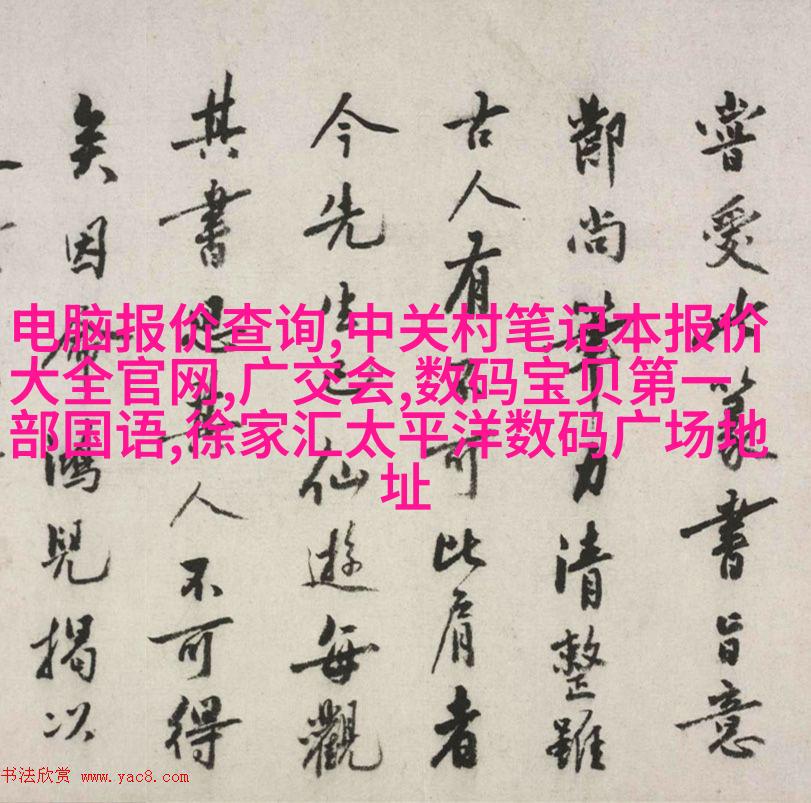 电脑报价查询,中关村笔记本报价
大全官网,广交会,数码宝贝第一
部国语,徐家汇太平洋数码广场地
址
嘗愛篆書旨意
尚筆力清整雖
古人有不可比肩者
今先生已仙遊每觀
其書人不可得
矣因鴻兒揭以
书法欣赏 www.yac8.com